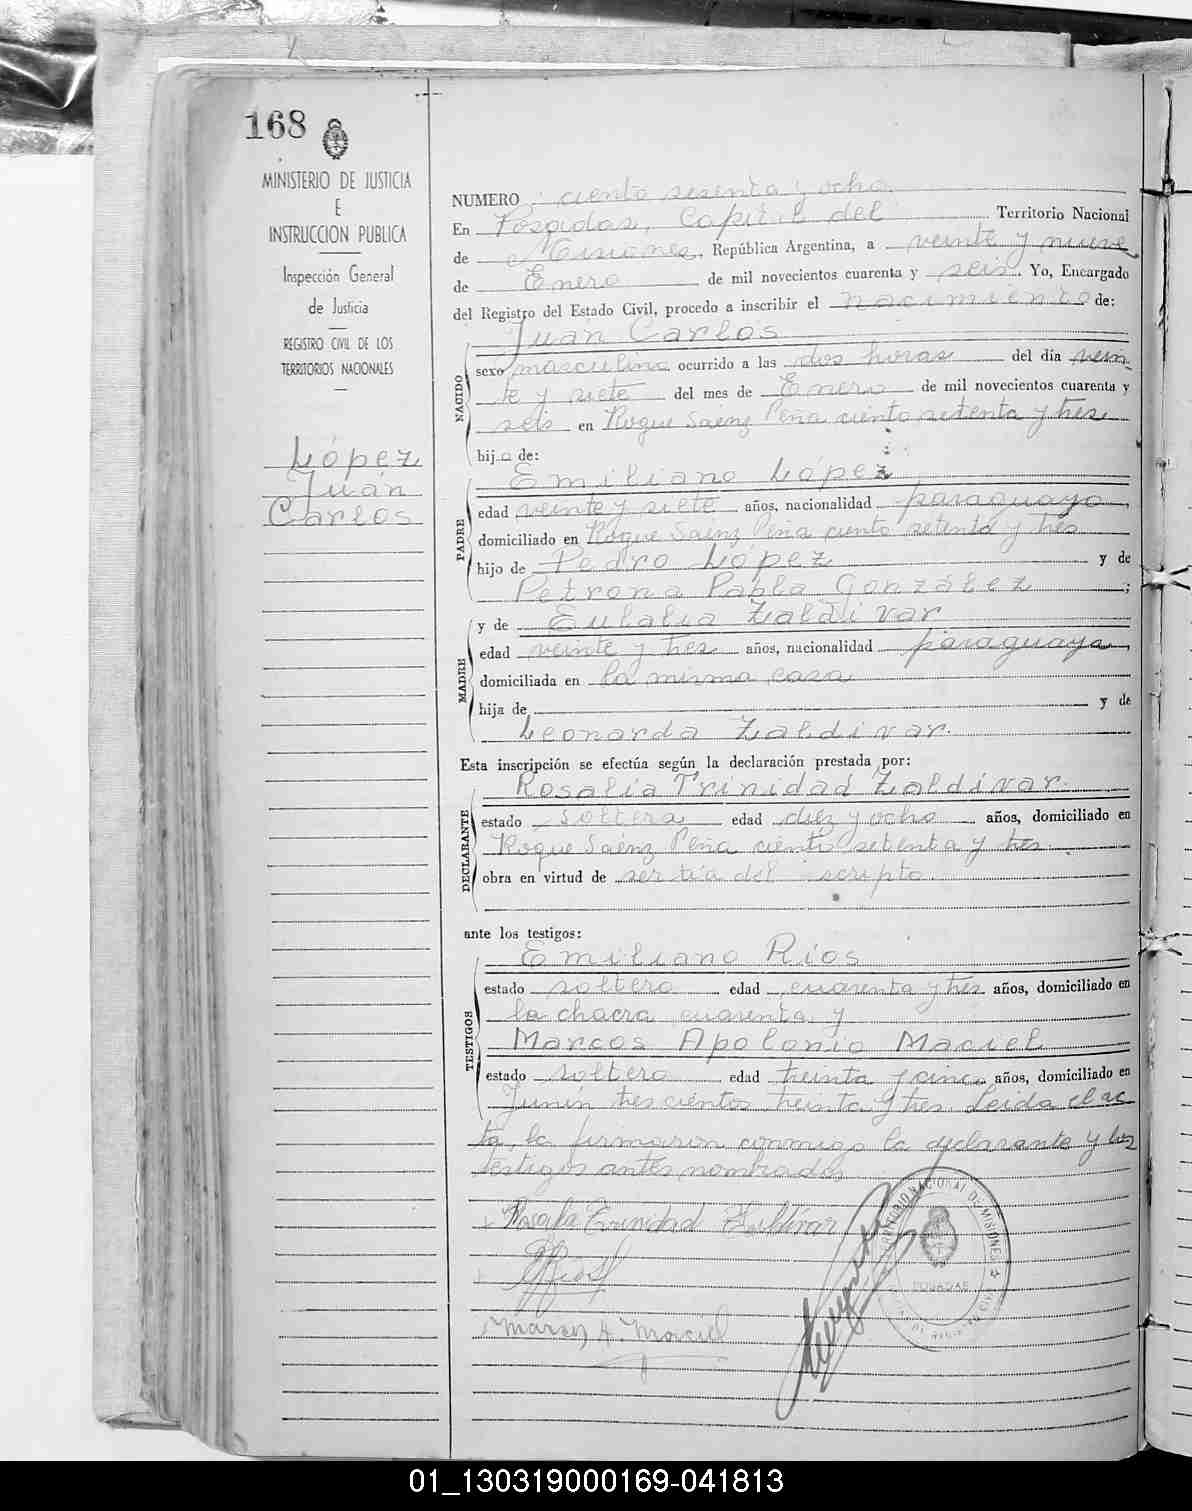 168
MINISTERIO DE JUSTICIA
E
INSTRUCCION PUBLICA
Inspección General
de Justicia
REGISTRO CIVIL DE LOS
TERRITORIOS NACIONALES
López
Juan
Carlos
NUMERO ciento sesenta y ocho
En Posadas, Capital del Territorio Nacional
de Misiones, República Argentina, a veinte y nueve
de Enero de mil novecientos cuarenta y seis. Yo, Encargado
del Registro del Estado Civil, procedo a inscribir el nacimiento de:
Juan Carlos
NACIDO
sexo masculino ocurrido a las dos horas del día vein
te y siete del mes de Enero de mil novecientos cuarenta y
seis en Roque Saénz Peña ciento setenta y tres
hijo de:
Emiliano López
PADRE
edad veinte y siete años, nacionalidad paraguayo,
domiciliado en Roque Saénz Peña ciento setenta y tres
hijo de Pedro López y de
Petrona Pabla González;
MADRE
y de Eulalia Zaldivar
edad veinte y tres años, nacionalidad paraguaya,
domiciliada en la misma casa
hija de y de
Leonarda Zaldivar.
Esta inscripción se efectúa según la declaración prestada por:
Rosalía Trinidad Zaldívar.
DECLARANTE
estado soltera edad diez y ocho años, domiciliado en
Roque Saénz Peña ciento setenta y tres.
obra en virtud de ser tía del inscripto.
ante los testigos:
Emiliano Ríos
TESTIGOS
estado soltero edad cuarenta y tres años, domiciliado en
la chacra cuarenta y
Marcos Apolonio Maciel
estado soltero edad treinta y cinco años, domiciliado en
Junín trescientos treinta y tres. Leida el ac
ta, la firmaron conmigo la declarante y los
testigos antes nombrados
Trinidad Zaldivar
Marcos A. Maciel
TERRITORIO NACIONAL DE MISIONES
POSADAS
01_130319000169-041813